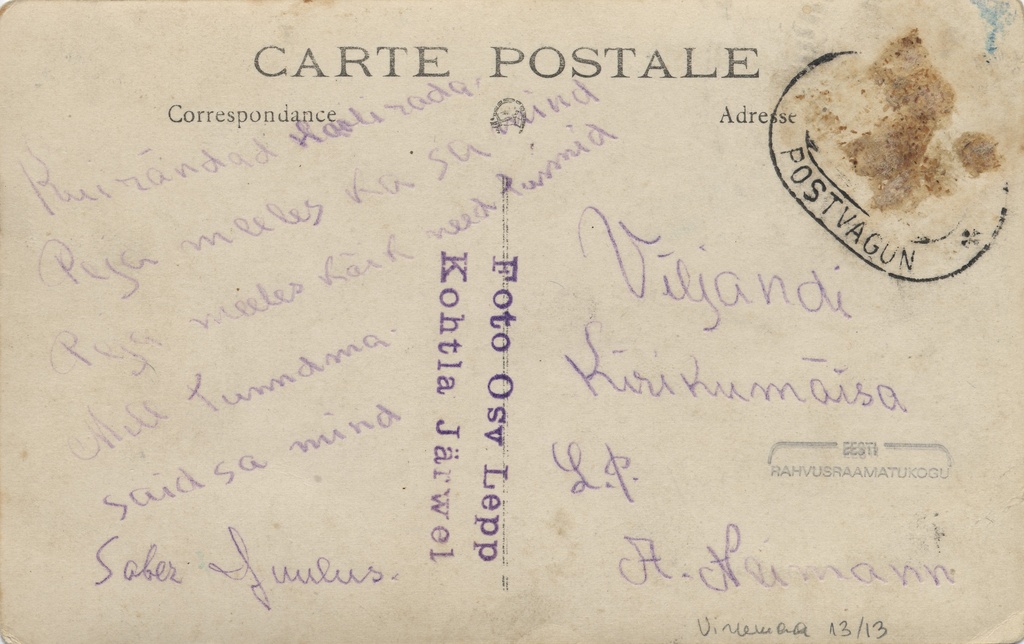 CARTE POSTALE
Correspondance
Adresse
POSTVAGUN
Kui rändad radu
Pea meeles ka sa mind
Pea meeles kõik need
Mil tunndma
said sa mind
Saber Juulus.
Foto Osv Lepp
Kohtla Järwel
Viljandi
Kirikumäisa
L.P.
A. Neimann
EESTI
RAHVUSRAAMATUKOGU
Virumaa 13/13